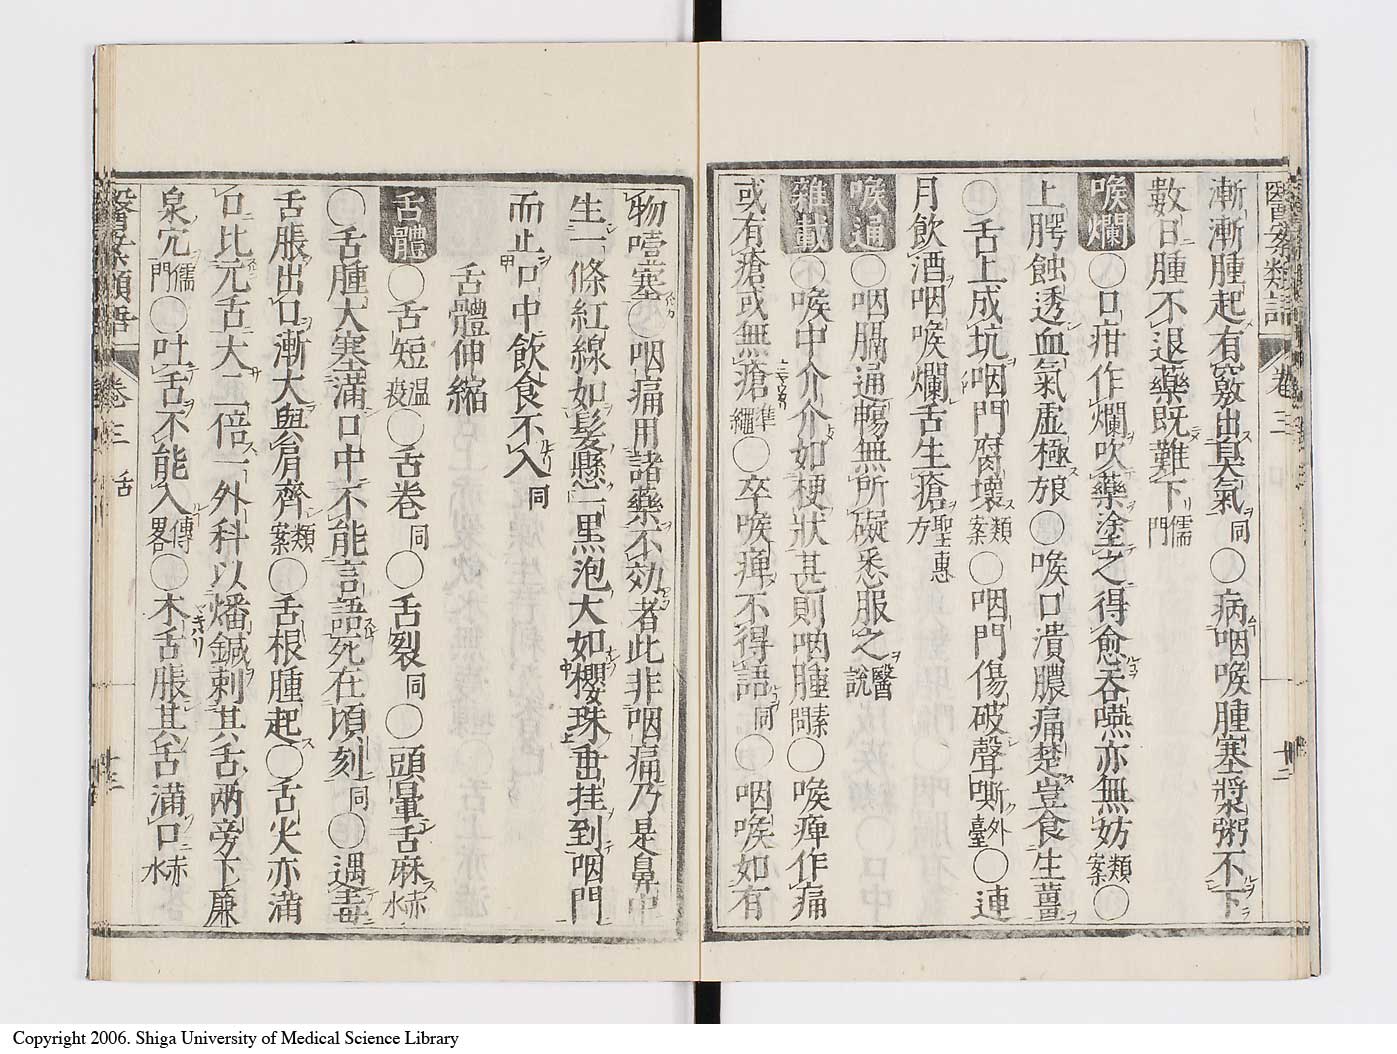 醫案類語 卷三 十二
漸漸腫起有竅出臭氣同〇病咽喉腫塞漿粥不下
數日腫不退藥既難下儒門
喉爛〇口疳作爛吹藥塗之得愈吞嚥亦無妨類案〇
上腭蝕透血氣虛極〇喉口潰膿痛楚豈食生薑
〇舌上成坑咽門腐壞類案〇咽門傷破聲嘶外臺〇連
月飲酒咽喉爛舌生瘡聖惠方
喉通〇咽膈通暢無所礙悉服之醫說
雜載〇喉中介介如梗狀甚則咽腫素問〇喉痺作痛
或有瘡或無瘡準繩〇卒喉痺不得語同〇咽喉如有
物噎塞〇咽痛用諸藥不効者此非咽痛乃是鼻中
生一條紅線如髮懸一黑泡大如櫻珠垂挂到咽門
而止口中飲食不入同
舌體伸縮
舌體〇舌短溫疫〇舌卷同〇舌裂同〇頭暈舌麻赤水
〇舌腫大塞滿口中不能言語死在頃刻同〇遇毒
舌脹出口漸大與肩齊類案〇舌根腫起〇舌火亦滿
口比元舌大二倍一外科以燔鍼刺其舌兩旁下廉
泉穴儒門〇吐舌不能入傳畧〇木舌脹其舌滿口赤水
醫案類語 卷三 舌 十三
Copyright 2006. Shiga University of Medical Science Library